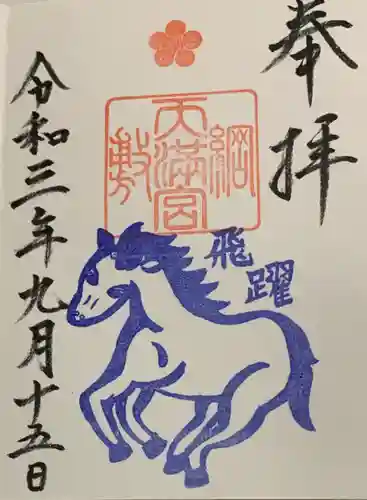 奉拝
綱敷天満宮
飛躍
令和三年九月十五日